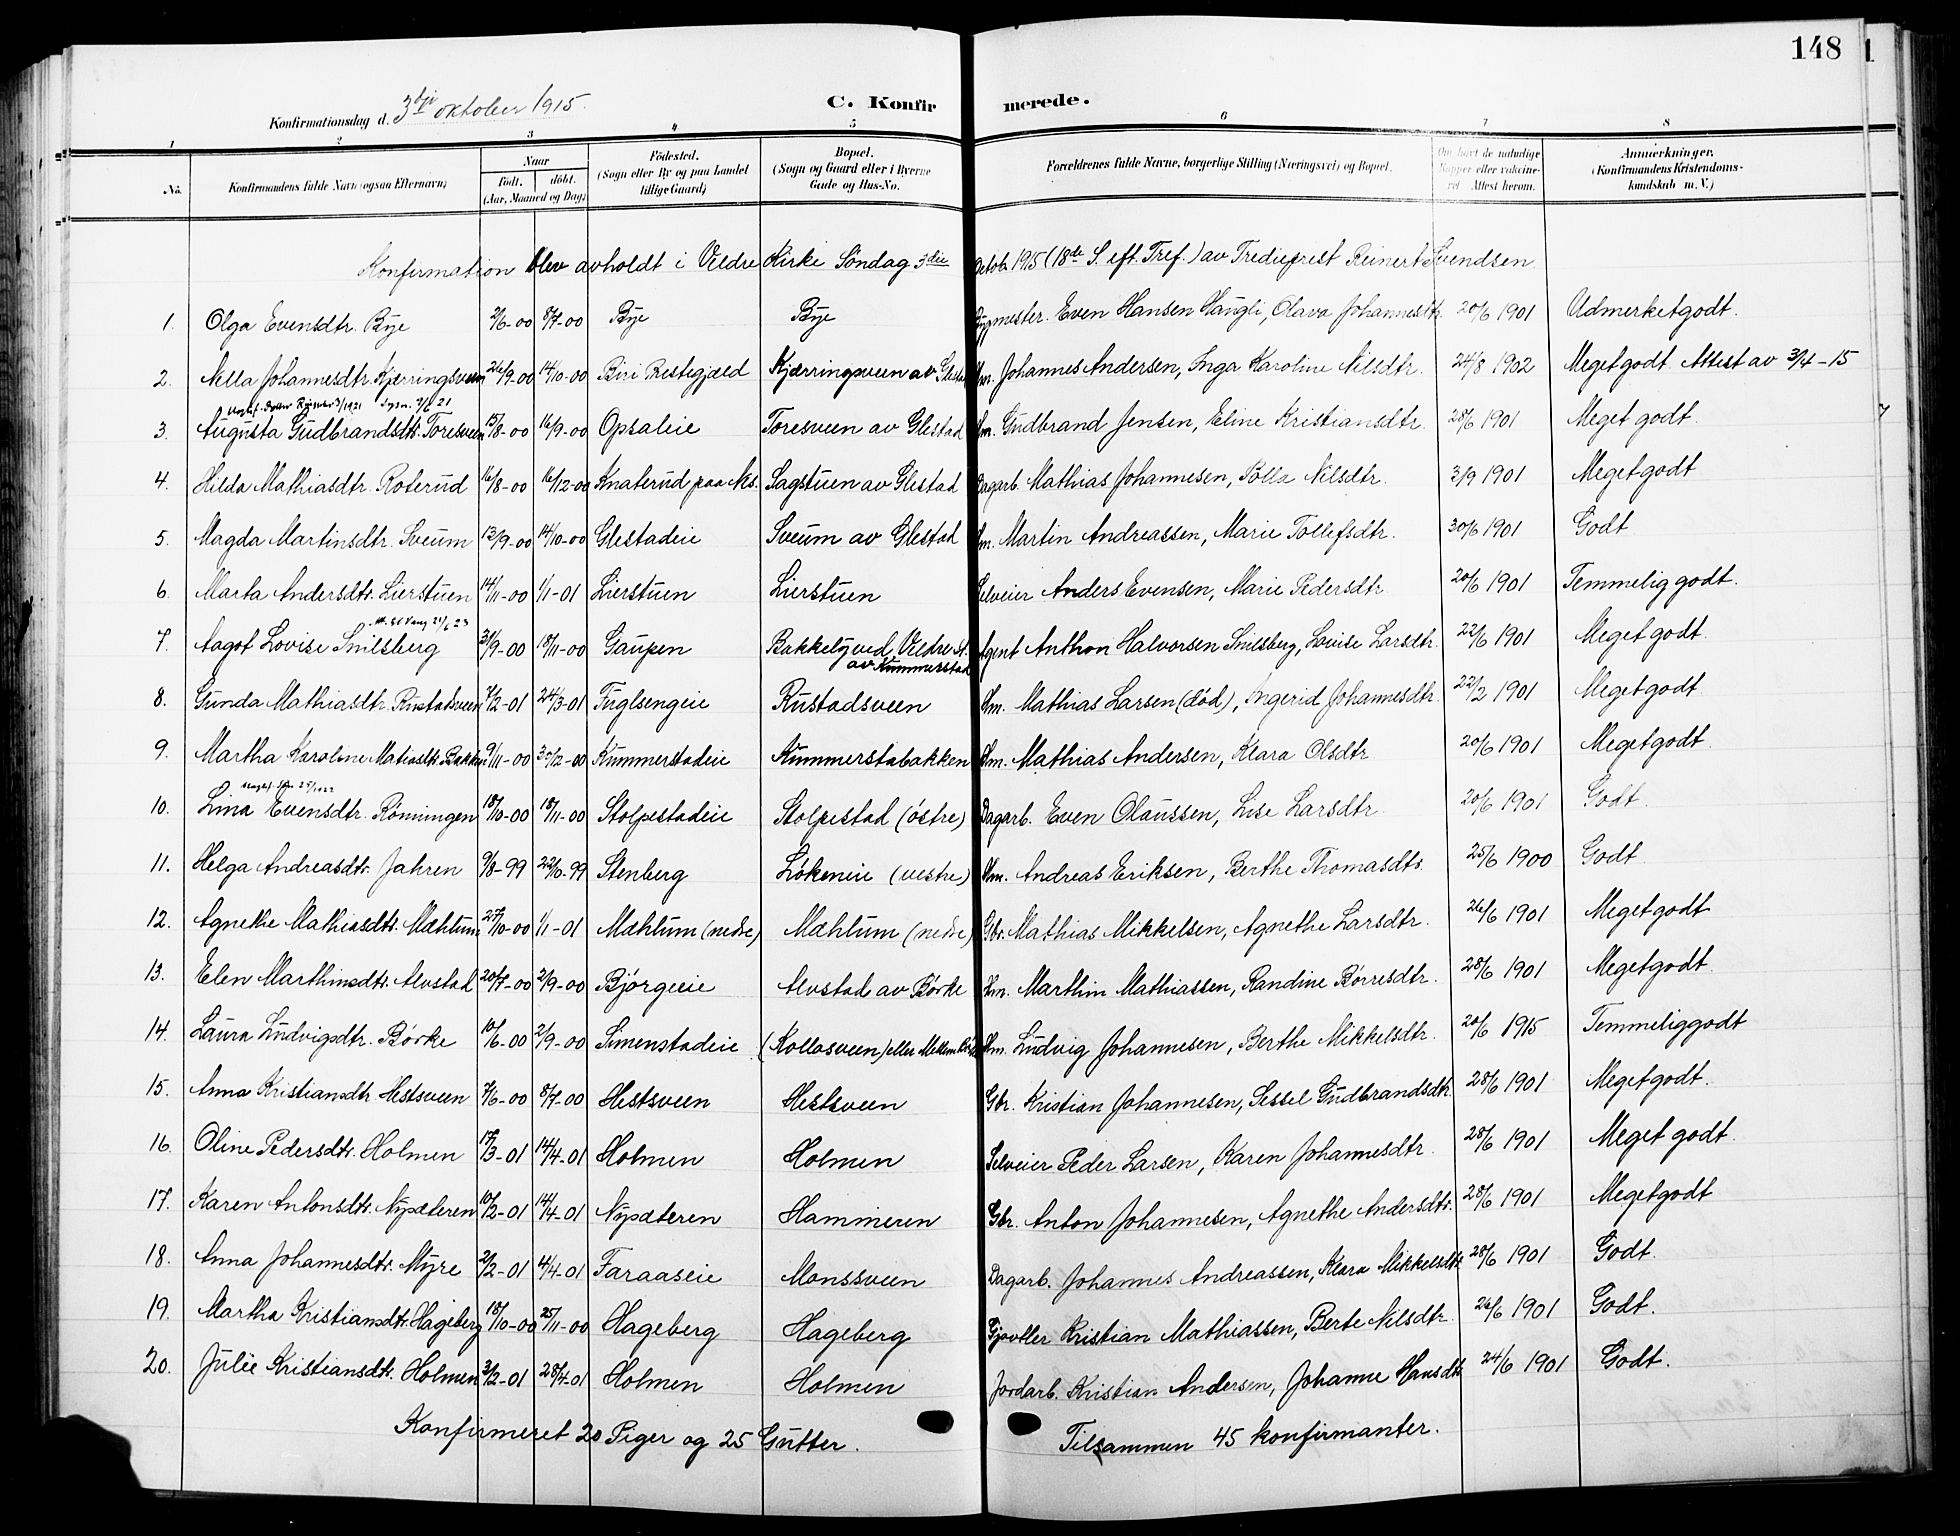 148
Konfirmationsdag d. 3die oktober 1915.
C. Konfirmerede.
1 2 3 4 5 6 7 8
No. Konfirmandens fulde Navn (ogsaa Efternavn) Naar født. døbt. (Aar, Maaned og Dag) Fødested. (Sogn eller By og paa Landet tillige Gaard) Bopæl. (Sogn og Gaard eller i Byerne Gade og Hus-No. Forældrenes fulde Navne, borgerlige Stilling (Næringsvei) og Bopæl. Om havt de naturlige Kopper eller vaccineret. Attest herom. Anmærkninger. (Konfirmandens Kristendomskundskab m. V.)
Konfirmation blev avholdt i Veldre Kirke Søndag 3die Octob. 1915 (18de S. eft. Tref.) av Tredieprest Reinert Svendsen.
1. Olga Evensdtr. Bye 2/6-00 8/7-00 Bye Bye Bygmester. Even Hansen Haugli, Olava Johannesdtr. 20/6 1901 Udmerketgodt.
2. Nella Johannesdtr. Kjærringsveen 26/9-00 14/10-00 Biri Prestegjæld Kjærringsveen av Glestad Hm. Johannes Andersen, Inga Karoline Nilsdtr. 24/8 1902 Megetgodt. Attest av 3/4-15
3. Augusta Gudbrandsdtr. Toresveen 15/8-00 16/9-00 Opsaleie Toresveen av Glestad Hm. Gudbrand Jensen, Eline Kristiansdtr. 28/6 1901 Meget godt.
4. Hilda Mathiasdtr. Roterud 16/8-00 16/12-00 Knaterud paa Nes. Sagstuen av Glestad Dagarb. Mathias Johannesen, Polla Nilsdtr. 3/9 1901 Megetgodt
5. Magda Martinsdtr. Sveum 13/9-00 14/10-00 Glestadeie Sveum av Glestad Hm. Martin Andreassen, Marie Tollefsdtr. 30/6 1901 Godt
6. Marta Andersdtr. Lierstuen 14/11-00 1/1-01 Lierstuen Lierstuen Selveier Anders Evensen, Marie Pedersdtr. 20/6 1901 Temmelig godt.
7. Aagot Lovise Snilsberg 3/9-00 18/11-00 Gaupen Bakkely ved Veldre St. av Kummerstad Agent Anthon Halvorsen Snilsberg, Louise Larsdtr. 22/6 1901 Megetgodt.
8. Gunda Mathiasdtr. Rustadsveen 7/2-01 24/3-01 Fuglsengeie Rustadsveen Hm. Mathias Larsen (død), Ingerid Johannesdtr. 22/2 1901 Megetgodt
9. Martha Karoline Matiasdtr. Bakken 9/11-00 30/12-00 Kummerstadeie Kummerstabakken Hm. Mathias Andersen, Klara Olsdtr. 20/6 1901 Megetgodt.
10. Lina Evensdtr. Rønningen 18/10-00 18/11-00 Stolpestadeie Stolpestad (østre) Dagarb. Even Olaussen, Lise Larsdtr. 20/6 1901 Godt.
11. Helga Andreasdtr. Jahren 9/8-99 22/10-99 Stenberg Løkeneie (vestre) Hm. Andreas Eriksen, Berthe Thomasdtr. 25/6 1900 Godt.
12. Agnethe Mathiasdtr. Mæhlum 27/10-00 1/1-01 Mæhlum (nedre) Mæhlum (nedre) Gbr. Mathias Mikkelsen, Agnethe Larsdtr. 26/6 1901 Megetgodt
13. Elen Marthinsdtr. Alvstad 20/7-00 2/9-00 Bjørgeeie Alvstad av Børke Hm. Marthin Mathiassen, Randine Børresdtr. 28/6 1901 Megetgodt.
14. Laura Ludvigsdtr. Børke 10/6-00 2/9-00 Simenstadeie (Kollosveen) eller Mellem Hm. Ludvig Johannesen, Berthe Mikkelsdtr. 20/6 1915 Temmeliggodt
15. Anna Kristiansdtr. Hestsveen 7/6-00 8/7-00 Hestsveen Hestsveen Gbr. Kristian Johannesen, Sessel Gudbrandsdtr. 28/6 1901 Megetgodt.
16. Oline Pedersdtr. Holmen 17/3-01 14/4-01 Holmen Holmen Selveier Peder Larsen, Karen Johannesdtr. 28/6 1901 Meget godt.
17. Karen Antonsdtr. Nysæteren 10/2-01 14/4-01 Nysæteren Hammeren Gbr. Anton Johannesen, Agnethe Andersdtr. 28/6 1901 Megetgodt
18. Anna Johannesdtr. Myre 2/2-01 4/4-01 Faraaseie Monssveen Dagarb. Johannes Andreassen, Klara Mikkelsdtr. 28/6 1901 Godt.
19. Martha Kristiansdtr. Hageberg 18/10-00 25/11-00 Hageberg Hageberg Gjørtler Kristian Mathiassen, Berte Nilsdtr. 26/6 1901 Godt.
20. Julie Kristiansdtr. Holmen 3/2-01 28/4-01 Holmen Holmen Jordarb. Kristian Andersen, Johanne Hansdtr. 24/6 1901 Godt.
Konfirmeret 20 Piger og 25 Gutter. Tilsammen 45 konfirmanter.